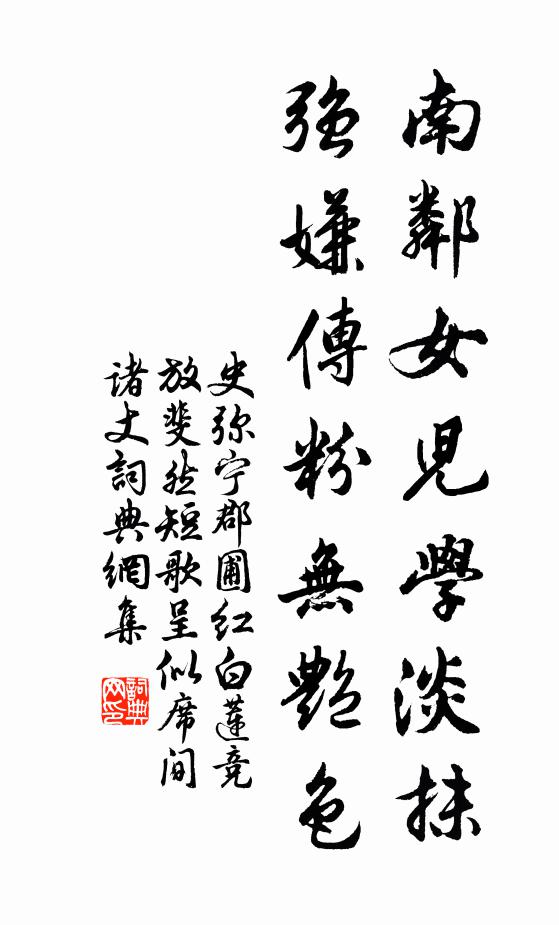 南鄰女児學淡抹
強嫌傅粉無艷色
史弥宁郡圃红白蓮竞
放斐然短歌呈似席间
诸丈詞典網集
詞典网印